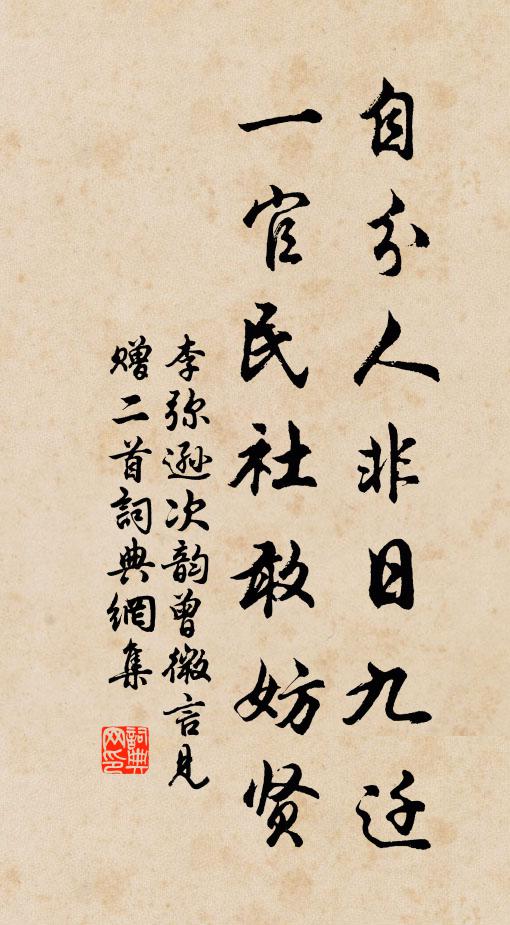 自分人非日九迁
一官民社敢妨贤
李弥逊次韵曾徽言见
赠二首詞典網集
詞典
网印